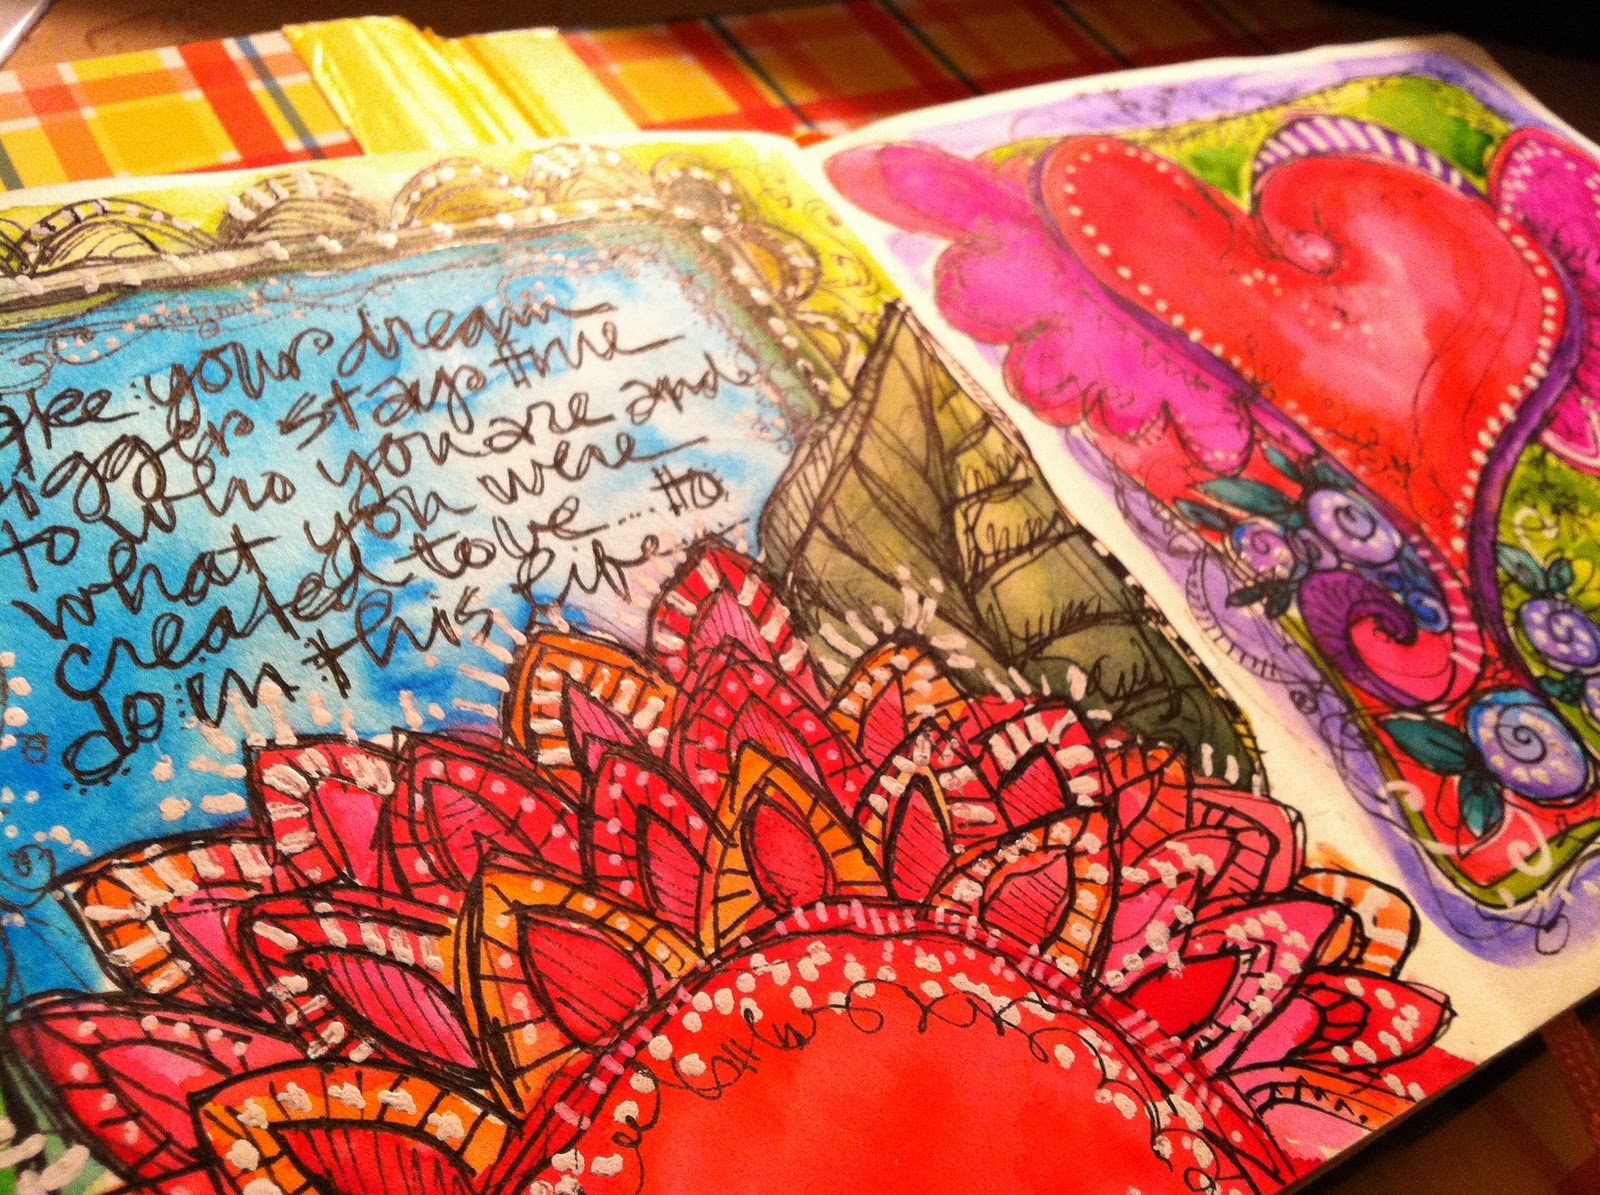 ake your dream
bigger stay true
to who you are and
what you were
created to be.... to
do in this life....